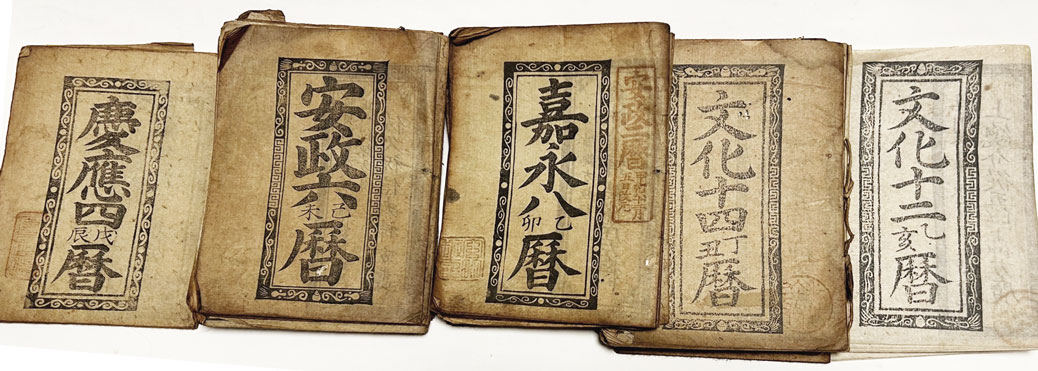 慶應四戊辰暦
安政六己未暦
嘉永八乙卯暦
安政二暦
文化十四丁丑暦
文化十二乙亥暦